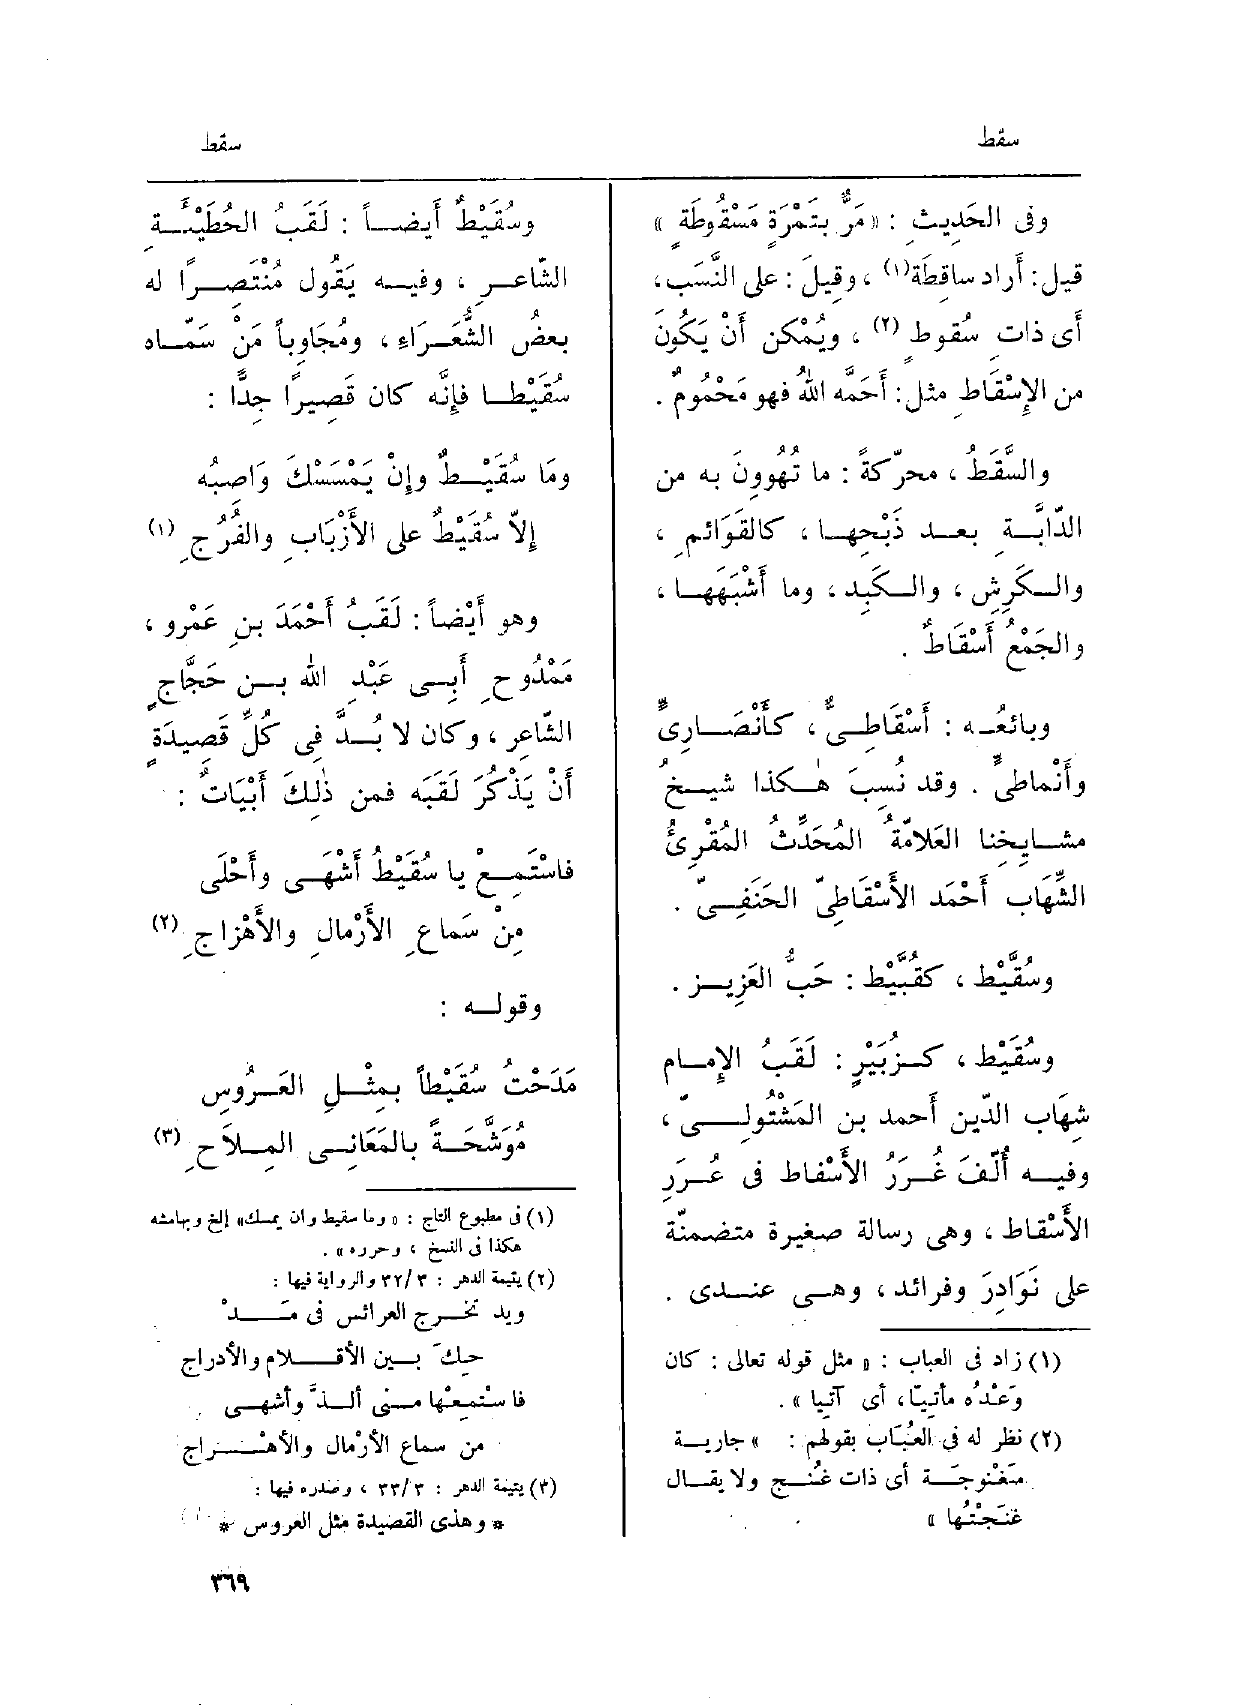 سقط
سقط
وفى الحَدِيثِ : « مَرَّ بتَمْرَةٍ مَسْقُوطَةٍ »
قيل: أَراد ساقِطَة(١) ، وقِيلَ : على النَّسَبِ ،
أَى ذات سُقوطٍ (٢) ، ويُمْكن أَنْ يَكُونَ
من الإِسْقَاطِ مثل : أَحَمَّه اللهُ فهو مَحْمُومٌ .
والسَّقَطُ ، محرّكةً : ما تُهُوونَ به من
الدّابَّةِ بعد ذَبْحِها ، كالقَوَائمِ ،
والكَرِشِ ، والكَبِدِ ، وما أَشْبَهَها ،
والجَمْعُ أَسْقَاطٌ .
وبائعُه : أَسْقَاطِىٌّ ، كأَنْصَارِىٌّ
وأَنْماطىٌّ . وقد نُسِبَ هٰكذا شيخُ
مشايِخِنا العَلاّمَةُ المُحَدِّثُ المُقْرِئُ
الشِّهَاب أَحْمَد الأَسْقَاطِىّ الحَنَفِىّ .
وسُقَّيْط ، كقُبَّيْط : حَبُّ العَزِيزِ .
وسُقَيْط ، كزُبَيْرٍ : لَقَبُ الإِمام
شِهَاب الدّين أَحمد بن المَشْتُولِىّ ،
وفيه أُلِّفَ غُرَرُ الأَسْفاط فى عُرَرِ
الأَسْقاط ، وهى رسالة صغيرة متضمنّة
على نَوَادِرَ وفرائد ، وهى عندى .
(١) زاد فى العباب : « مثل قوله تعالى : كان
وَعْدُه مأْتِيّا، أى آتِيا » .
(٢) نظر له فى العُبَاب بقولهم : » جارية
مَغْنوجَة أى ذات غُنج ولا يقال
غَنَجْتُها »
وسُقَيْطٌ أَيضاً : لَقَبُ الحُطَيْئَةِ
الشّاعرِ ، وفيه يَقُول مُنْتَصِرًا له
بعضُ الشُّعَرَاءِ ، ومُجَاوِباً مَنْ سَمّاه
سُقَيْطا فإِنَّه كان قَصِيرًا جِدًّا :
ومَا سُقَيْطٌ وإِنْ يَمْسَسْكَ وَاصِبُه
إِلاّ سُقَيْطُ على الأَزْبَابِ والفُرُجِ (١)
وهو أَيْضاً : لَقَبُ أَحْمَدَ بنِ عَمْرو ،
مَمْدُوحِ أَبِى عَبْدِ الله بن حَجَّاجٍ
الشّاعِر ، وكان لا بُدَّ فِى كُلِّ قَصِيدَةٍ
أَنْ يَذْكُرَ لَقَبَه فمن ذٰلِكَ أَبْيَاتٌ :
فاسْتَمِعْ يا سُقَيْطُ أَشْهَى وأَحْلَى
مِنْ سَماعِ الأَرْمالِ والأَهْزاجِ (٢)
وقوله :
مَدَحْتُ سُقَيْطاً بمِثْلِ العَرُوسِ
مُوَشَّحَةً بالمَعَانِى المِلاَحِ (٣)
(١) فى مطبوع التاج : « وما سقيط وان يمسك» إلخ وبهامشه
هكذا فى النسخ ، وحرره » .
(٢) يتيمة الدهر : ٣ /٣٢ والرواية فيها :
ويد تخرج العرائس فى مَدْ
حِكَ بين الأقلام والأدراج
فاستمعْها منى ألذَّ وأشهى
من سماع الأرْمال والأهْزاج
(٣) يتيمة الدهر : ٣ /٣٣ ، وصدره فيها :
* وهذى القصيدة مثل العروس *
٣٦٩